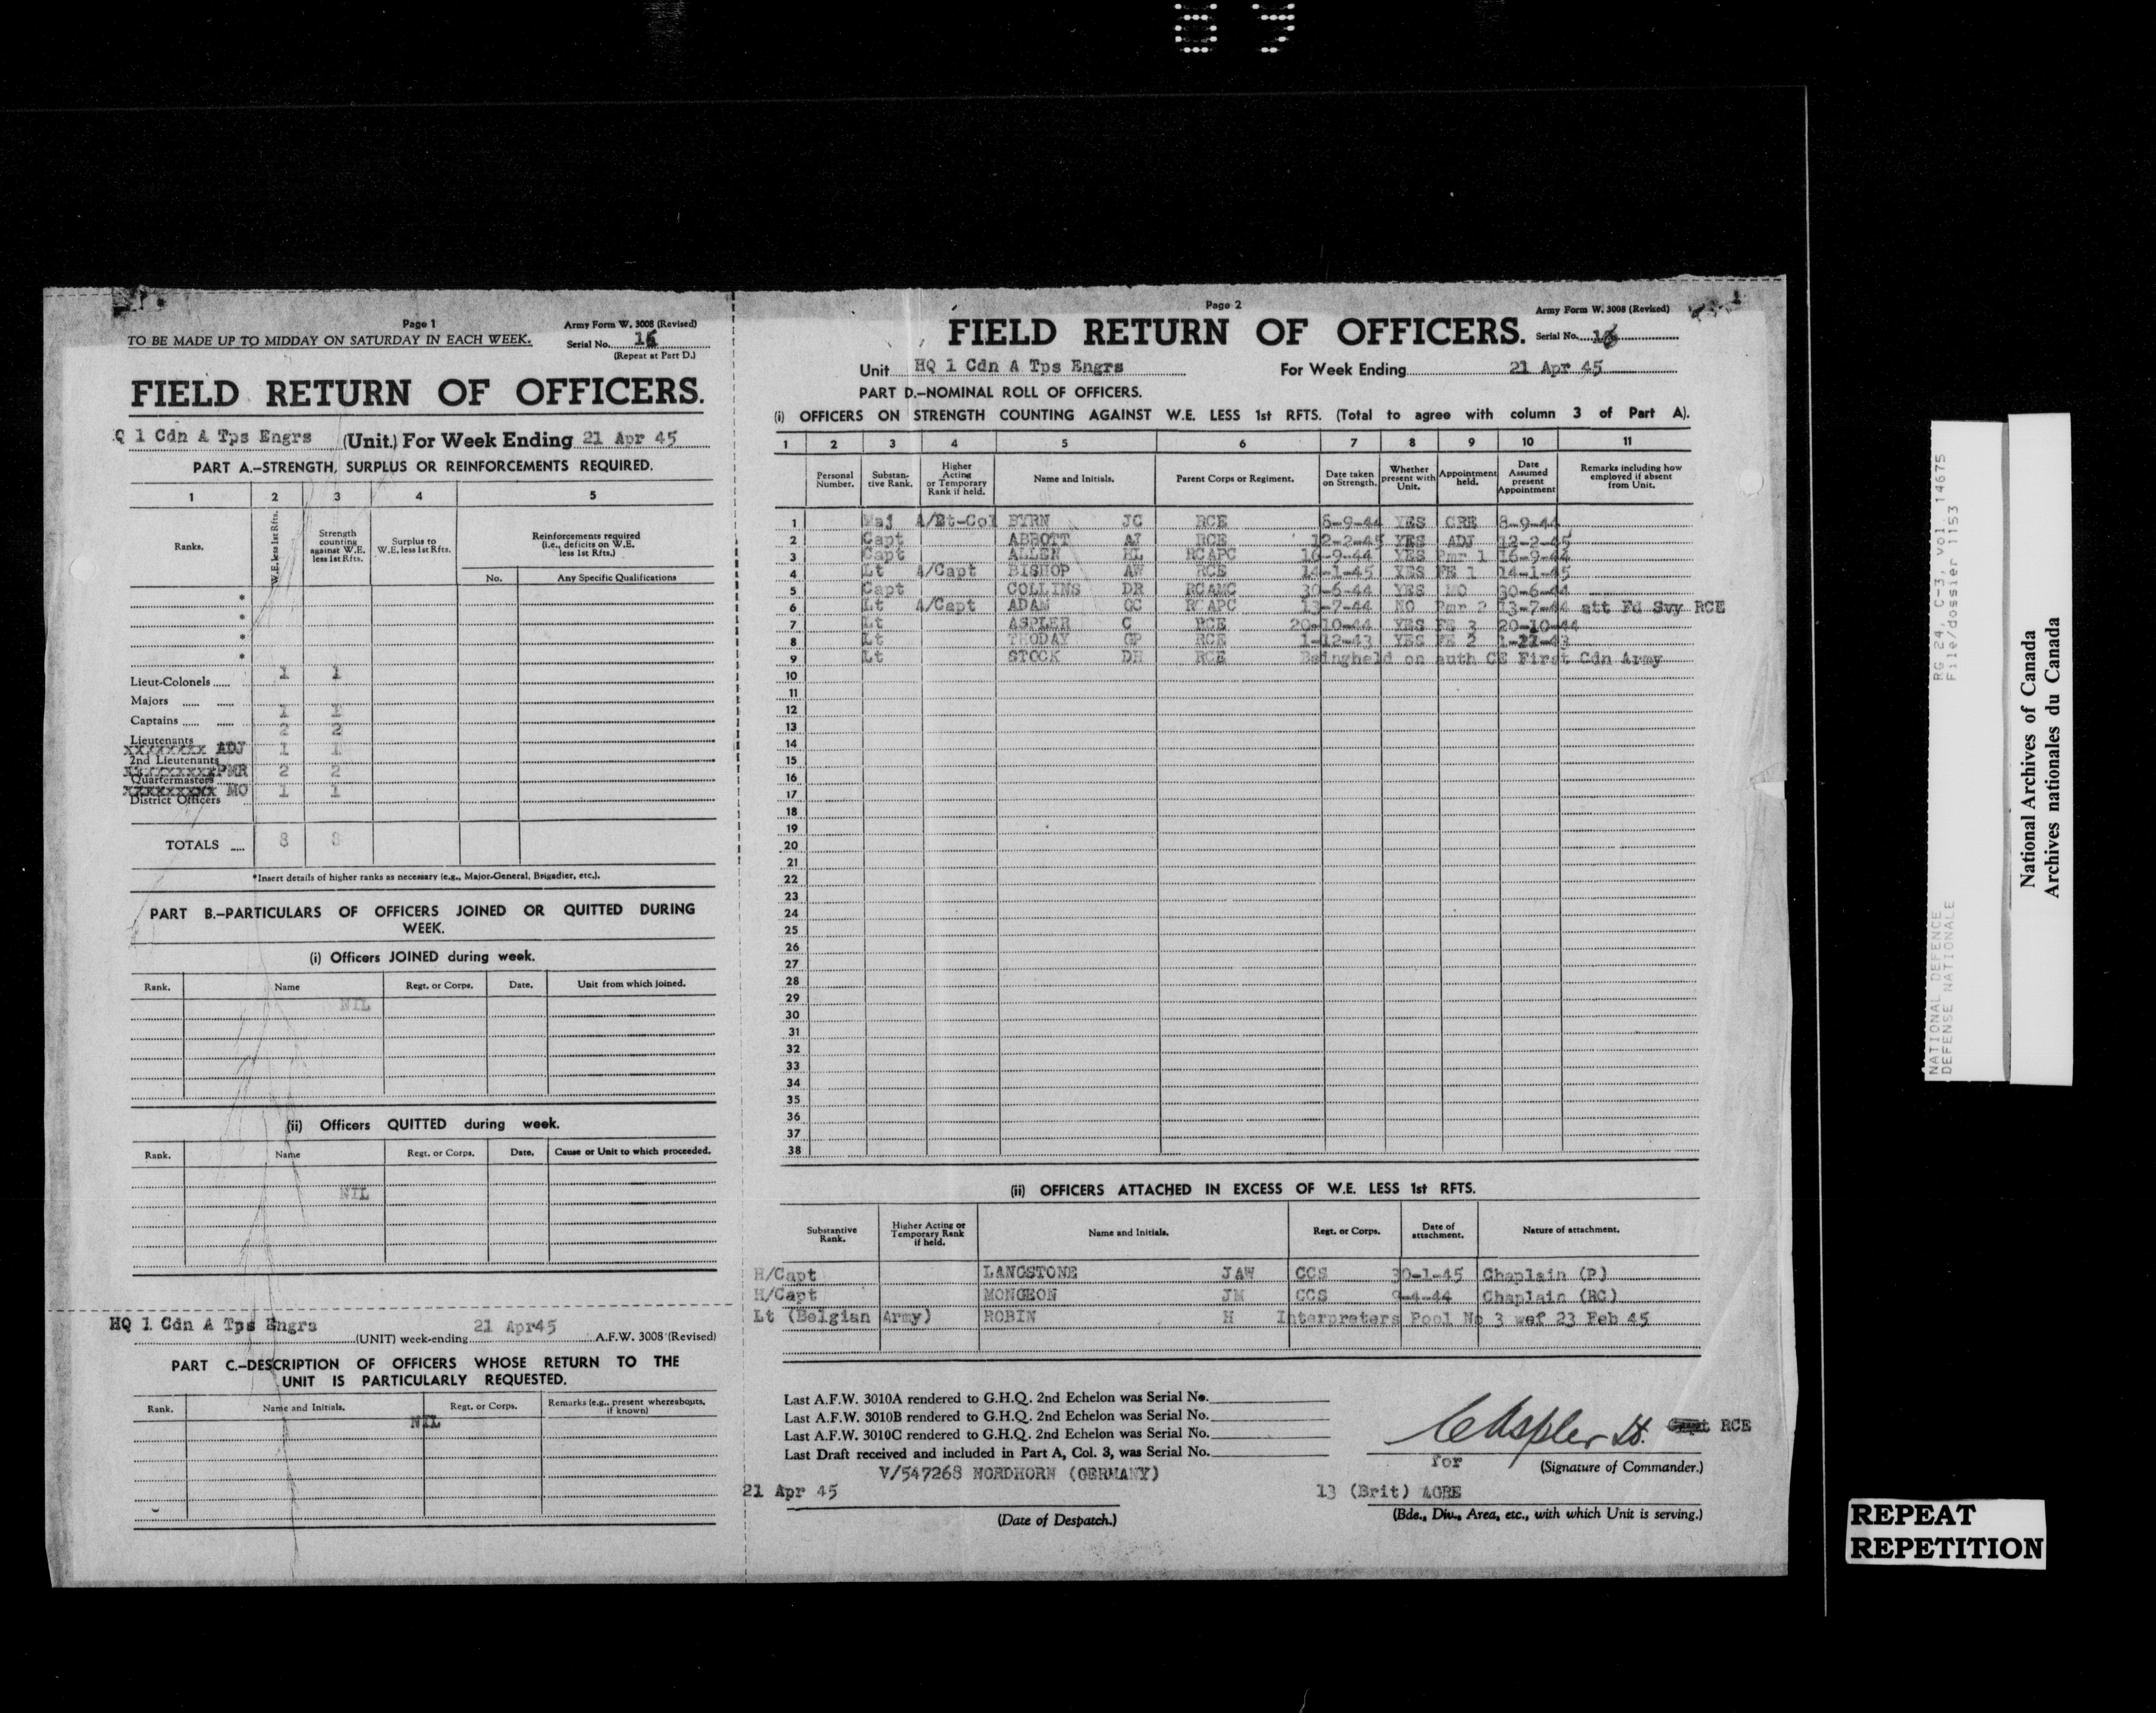 Page 1
TO BE MADE UP TO MIDDAY ON SATURDAY IN EACH WEEK.
Army Form W. 3008 (Revised)
Serial No. 16
(Repeat at Part D.)
FIELD RETURN OF OFFICERS.
Q 1 Cdn A Tps Engrs (Unit.) For Week Ending 21 Apr 45
PART A.-STRENGTH, SURPLUS OR REINFORCEMENTS REQUIRED.
1 2 3 4 5
Ranks.
W.E. less 1st Rfts.
Strength counting against W.E. less 1st Rfts.
Surplus to W.E. less 1st Rfts.
Reinforcements required (i.e., deficits on W.E. less 1st Rfts.)
No. Any Specific Qualifications
*
*
*
*
Lieut-Colonels 1 1
Majors
Captains 1 1
Lieutenants 2 2
xxxxxxxx ADJ 1 1
2nd Lieutenants
xxxxxxxxxPMR 2 2
Quartermasters
xxxxxxxxx MO 1 1
District Officers
TOTALS 8 8
*Insert details of higher ranks as necessary (e.g., Major-General, Brigadier, etc.).
PART B.-PARTICULARS OF OFFICERS JOINED OR QUITTED DURING WEEK.
(i) Officers JOINED during week.
Rank. Name Regt. or Corps. Date. Unit from which joined.
NIL
(ii) Officers QUITTED during week.
Rank. Name Regt. or Corps. Date. Cause or Unit to which proceeded.
NIL
HQ 1 Cdn A Tps Engrs (UNIT) week-ending 21 Apr45 A.F.W. 3008 (Revised)
PART C.-DESCRIPTION OF OFFICERS WHOSE RETURN TO THE
UNIT IS PARTICULARLY REQUESTED.
Rank. Name and Initials. Regt. or Corps. Remarks (e.g., present whereabouts, if known)
NIL
Page 2
FIELD RETURN OF OFFICERS.
Army Form W. 3008 (Revised)
Serial No. 16
Unit HQ 1 Cdn A Tps Engrs For Week Ending 21 Apr 45
PART D.-NOMINAL ROLL OF OFFICERS.
(i) OFFICERS ON STRENGTH COUNTING AGAINST W.E. LESS 1st RFTS. (Total to agree with column 3 of Part A).
1 2 3 4 5 6 7 8 9 10 11
Personal Number.
Substantive Rank.
Higher Acting or Temporary Rank if held.
Name and Initials.
Parent Corps or Regiment.
Date taken on Strength.
Whether present with Unit.
Appointment held.
Date Assumed present Appointment
Remarks including how employed if absent from Unit.
1 Maj A/Lt-Col BYRN JC RCE 8-9-44 YES CRE 8-9-44
2 Capt ABBOTT AJ RCE 12-2-45 YES ADJ 12-2-45
3 Capt ALLEN HL RCAPC 16-9-44 YES Pmr 1 16-9-44
4 Lt A/Capt BISHOP AW RCE 14-1-45 YES FE 1 14-1-45
5 Capt COLLINS DR RCAMC 30-6-44 YES MO 30-6-44
6 Lt A/Capt ADAM GC RCAPC 13-7-44 NO Pmr 2 13-7-44 att Fd Svy RCE
7 Lt ASPLER C RCE 20-10-44 YES FE 3 20-10-44
8 Lt THODAY GP RCE 1-12-43 YES FE 2 1-12-43
9 Lt STOCK DH RCE Beingheld on auth CE First Cdn Army
10
11
12
13
14
15
16
17
18
19
20
21
22
23
24
25
26
27
28
29
30
31
32
33
34
35
36
37
38
(ii) OFFICERS ATTACHED IN EXCESS OF W.E. LESS 1st RFTS.
Substantive Rank. Higher Acting or Temporary Rank if held. Name and Initials. Regt. or Corps. Date of attachment. Nature of attachment.
H/Capt LANGSTONE JAW CCS 30-1-45 Chaplain (P)
H/Capt MONGEON JM CCS 9-4-44 Chaplain (RC)
Lt (Belgian Army) ROBIN H Interpreters Pool No 3 wef 23 Feb 45
Last A.F.W. 3010A rendered to G.H.Q. 2nd Echelon was Serial No.
Last A.F.W. 3010B rendered to G.H.Q. 2nd Echelon was Serial No.
Last A.F.W. 3010C rendered to G.H.Q. 2nd Echelon was Serial No.
Last Draft received and included in Part A, Col. 3, was Serial No.
V/547268 NORDHORN (GERMANY)
CAspler Lt. RCE
for (Signature of Commander.)
21 Apr 45
(Date of Despatch.)
13 (Brit) AGRE
(Bde., Div., Area, etc., with which Unit is serving.)
NATIONAL DEFENCE RG 24, C-3, vol. 14675
DEFENSE NATIONALE File/dossier 1153
National Archives of Canada
Archives nationales du Canada
REPEAT
REPETITION